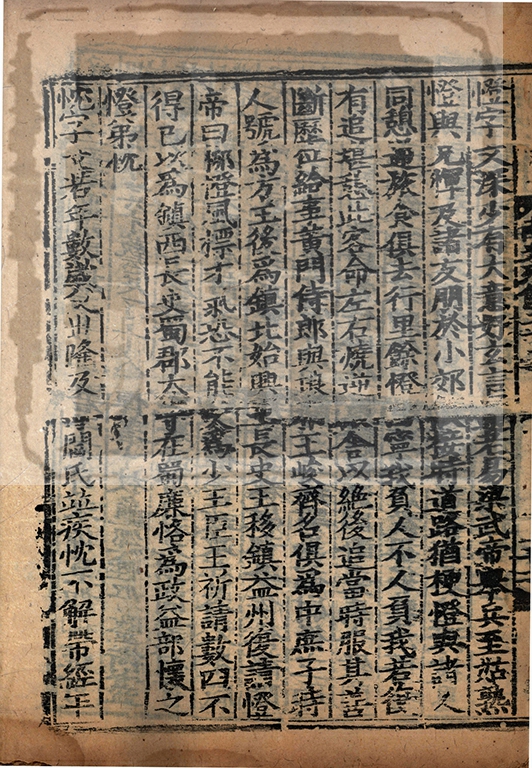 憕字文深少有大意好玄言通老易梁武帝舉兵至姑熟
憕與兄惲及諸友朋於小郊候接時道路猶梗憕與諸人
同憩逆旅食俱去行里餘憕曰寧我負人不人負我若復
有追堪憩此客命左右燒逆旅舍以絕後追當時服其善
斷歷位給事黃門侍郎與琅邪王峻齊名俱為中庶子時
人號為方王後為鎮北始興王長史王移鎮益州復請憕
帝曰柳憕風標才氣恐不能久為少王臣王祈請數四不
得已以為鎮西長史蜀郡太守在蜀廉恪為政益部懷之
憕弟忱
忱字文若年數歲父世隆及母閻氏並疾忱不解帶經年